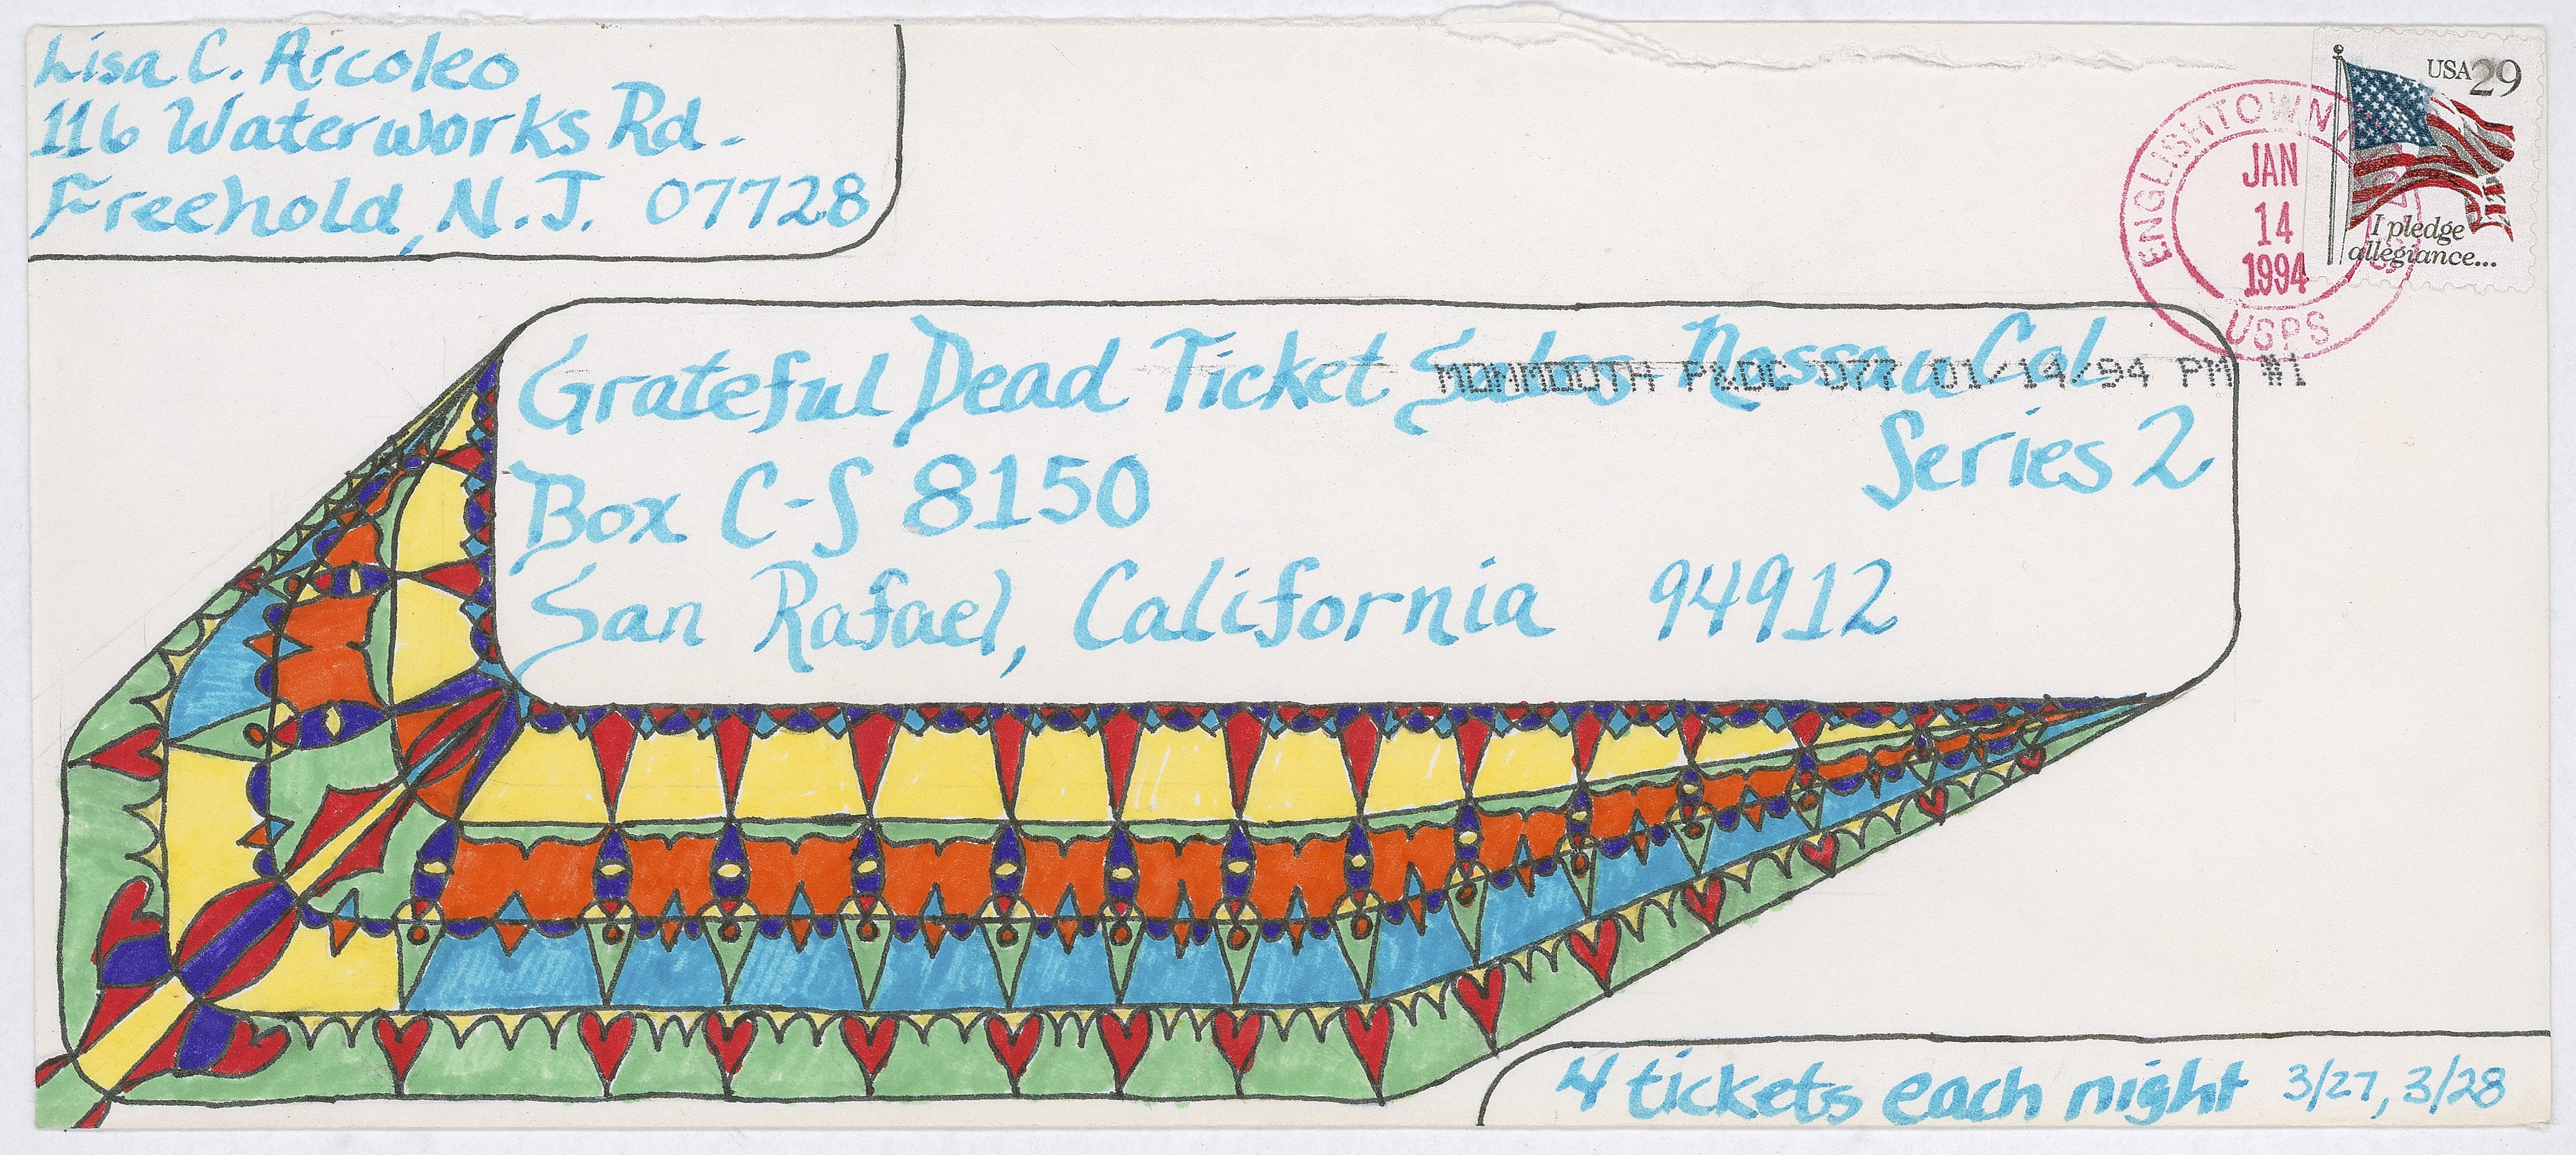 Lisa C. Arcoleo
116 Waterworks Rd.
Freehold, N.J. 07728
USA 29
I pledge
allegiance...
ENGLISHTOWN
JAN
14
1994
USPS
Grateful Dead Ticket Sales - Nassau Col.
Series 2
MONMOUTH P&DC 077 01/14/94 PM #1
Box C-S 8150
San Rafael, California 94912
4 tickets each night 3/27, 3/28